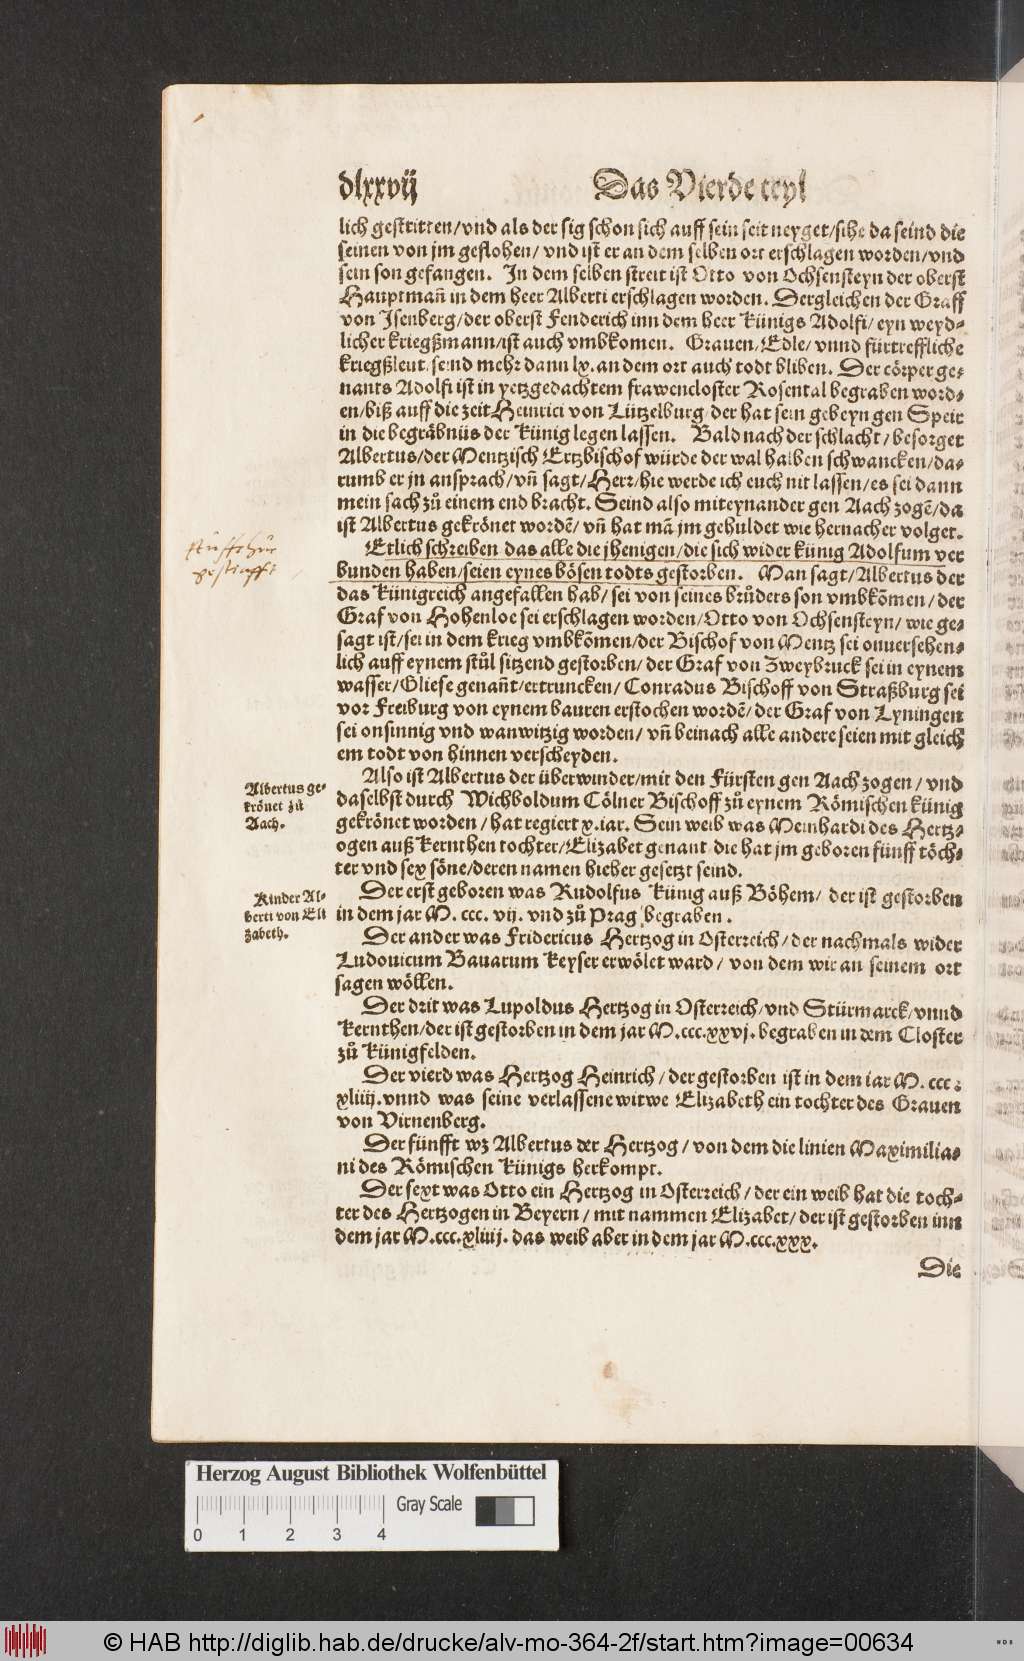 dlxxvij Das Vierde teyl
lich gestritten/vnd als der sig schon sich auff sein seit neyget/sihe da seind die
seinen von jm geflohen/ vnd ist er an dem selben ort erschlagen worden/vnd
sein son gefangen. In dem selben streit ist Otto von Ochsensteyn der oberst
Hauptman̄ in dem heer Alberti erschlagen worden. Dergleichen der Graff
von Isenberg/der oberst Fenderich inn dem heer Künigs Adolfi/ eyn weyd-
licher kriegßmann/ist auch vmbkomen. Grauen/Edle/ vnnd fürtreffliche
kriegßleut seind mehr dann lx. an dem ort auch todt bliben. Der cörper ge-
nants Adolfi ist in yetzgedachtem frawencloster Rosental begraben word-
en/biß auff die zeit Heinrici von Lützelburg/der hat sein gebeyn gen Speir
in die begräbnüs der Künig legen lassen. Bald nach der schlacht/ besorget
Albertus/der Mentzisch Ertzbischof würde der wal halben schwancken/da-
rumb er jn ansprach/vn̄ sagt/Herr/hie werde ich euch nit lassen/es sei dann
mein sach zů einem end bracht. Seind also miteynander gen Aach zogē/da
ist Albertus gekrönet wordē/ vn̄ hat mā jm gehuldet wie hernacher volget.
Etlich schreiben das alle die jhenigen/die sich wider künig Adolfum ver
bunden haben/seien eynes bösen todts gestorben. Man sagt/Albertus der
das Künigreich angefallen hab/ sei von seines brůders son vmbkōmen/ der
Graf von Hohenloe sei erschlagen worden/Otto von Ochsensteyn/ wie ge-
sagt ist/sei in dem krieg vmbkōmen/der Bischof von Mentz sei onuersehen-
lich auff eynem stůl sitzend gestorben/ der Graf von Zweybruck sei in eynem
wasser/Gliese genan̄t/ertruncken/ Conradus Bischoff von Straßburg sei
vor Freiburg von eynem bauren erstochen wordē/ der Graf von Lyningen
sei onsinnig vnd wanwitzig worden/ vn̄ beinach alle andere seien mit gleich
em todt von hinnen verscheyden.
Albertus ge-
krönet zů
Aach.
Also ist Albertus der überwinder/mit den Fürsten gen Aach zogen/ vnd
daselbst durch Wichboldum Cölner Bischoff zů eynem Römischen künig
gekrönet worden/ hat regiert x.iar. Sein weib was Meinhardi des Hertz-
ogen auß Kernthen tochter/Elizabet genant die hat jm geboren fünff töch-
ter vnd sex söne/deren namen hieher gesetzt seind.
Kinder Al-
berti von Eli
zabeth.
Der erst geboren was Rudolfus Künig auß Böhem/ der ist gestorben
in dem jar M. ccc. vij. vnd zů Prag begraben.
Der ander was Fridericus Hertzog in Osterreich/ der nachmals wider
Ludouicum Bauarum Keyser erwölet ward/ von dem wir an seinem ort
sagen wöllen.
Der drit was Lupoldus Hertzog in Osterreich/vnd Stürmarck/vnnd
Kernthen/der ist gestorben in dem jar M.ccc.xxvj. begraben in dem Closter
zů Künigfelden.
Der vierd was Hertzog Heinrich/ der gestorben ist in dem iar M. ccc:
xliiij.vnnd was seine verlassene witwe Elizabeth ein tochter des Grauen
von Virnenberg.
Der fünfft wz Albertus der Hertzog/ von dem die linien Maximilia-
ni des Römischen Künigs herkompt.
Der sext was Otto ein Hertzog in Osterreich/ der ein weib hat die toch-
ter des Hertzogen in Beyern/ mit nammen Elizabet/ der ist gestorben inn
dem jar M.ccc.xliiij. das weib aber in dem jar M.ccc.xxx.
Die
Herzog August Bibliothek Wolfenbüttel
Gray Scale
0 1 2 3 4
© HAB http://diglib.hab.de/drucke/alv-mo-364-2f/start.htm?image=00634